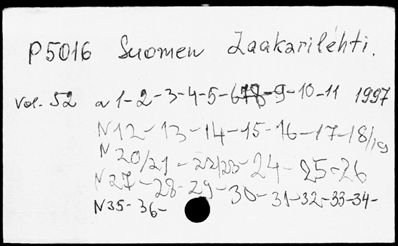 P5016 Suomen Laakarilehti.
Vol. 52 N 1-2-3-4-5-678-9-10-11 1997
N12-13-14-15-16-17-18/19
N20/21-22/23-24-25-26
N27-28-29-30-31-32-33-34-
N35-36-